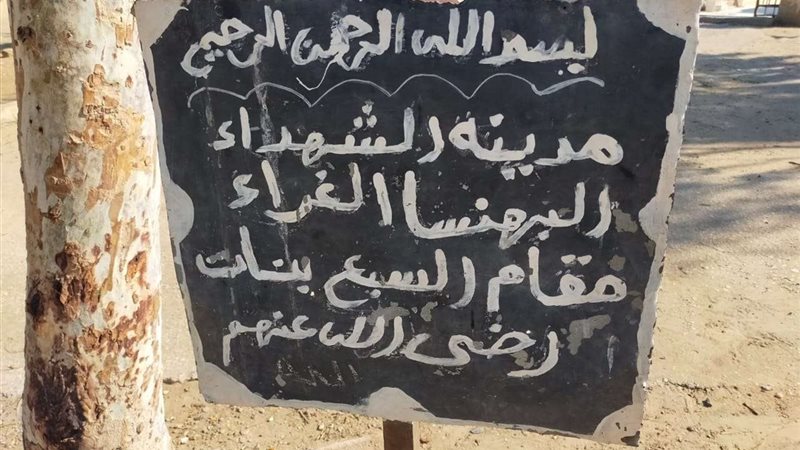 بسم الله الرحمن الرحيم
مدينة الشهداء
البهنسا الغراء
مقام السبع بنات
رضى الله عنهم